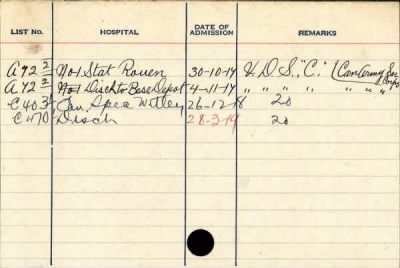 LIST No. HOSPITAL DATE OF ADMISSION REMARKS
A 72 2 No 1 Stat Rouen 30-10-17 V.D.S. "C." (Can Army Ser Corps
A 72 2 No 1 Disch to Base Depot 4-11-17 " " " " " " "
C 403 Can. Spec Witley 26-12-18 20
C 470 Disch 28-3-19 20